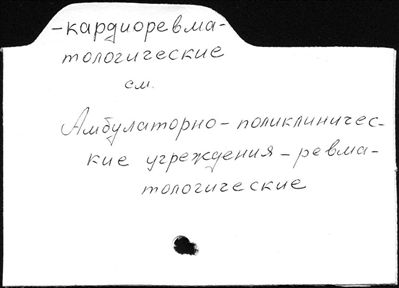 -кардиоревма-
тологические
см.
Амбулаторно-поликлиничес-
кие учреждения-ревма-
тологические